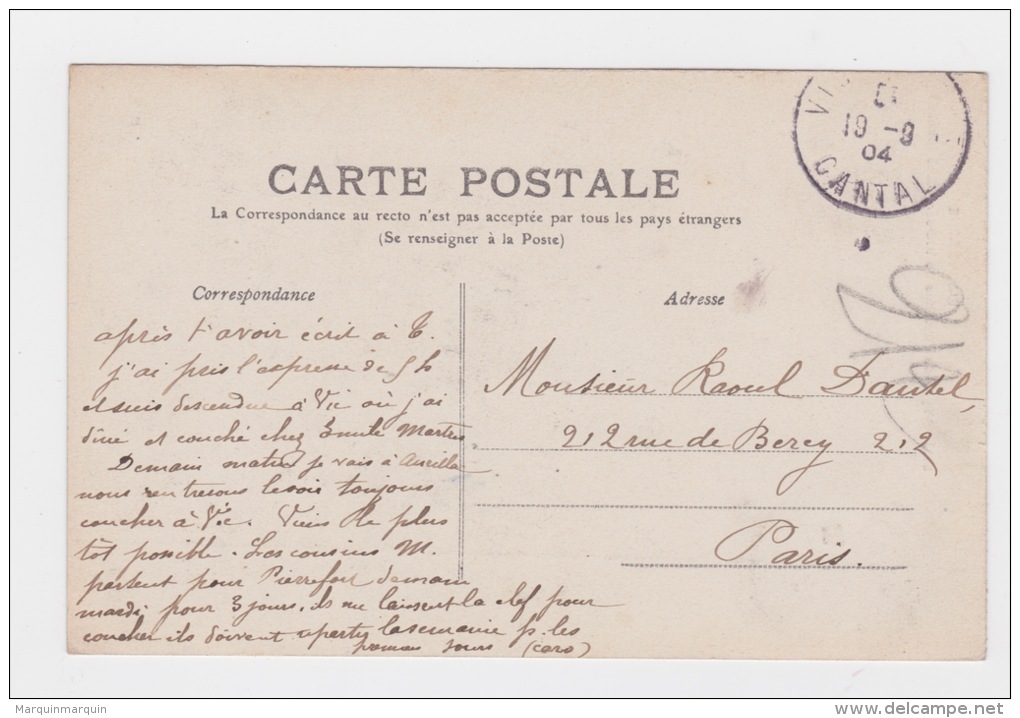 VI
19 -9
04
CANTAL
CARTE POSTALE
La Correspondance au recto n'est pas acceptée par tous les pays étrangers
(Se renseigner à la Poste)
Correspondance
après t'avoir écrit à T.
j'ai pris l'expresse de 5 h
et suis descendue à Vic où j'ai
dîné et couché chez Emile
Demain matin je vais à
nous rentrerons le soir toujours
coucher à Vic. Viens le plus
tôt possible. Les cousins M.
partent pour Pierrefort demain
mardi pour 3 jours, ils me laissent la clef pour
coucher ils doivent la semaine p. les
premiers jours
Adresse
Monsieur Raoul
212 rue de Bercy 212
Paris.
Marquinmarquin
www.delcampe.net